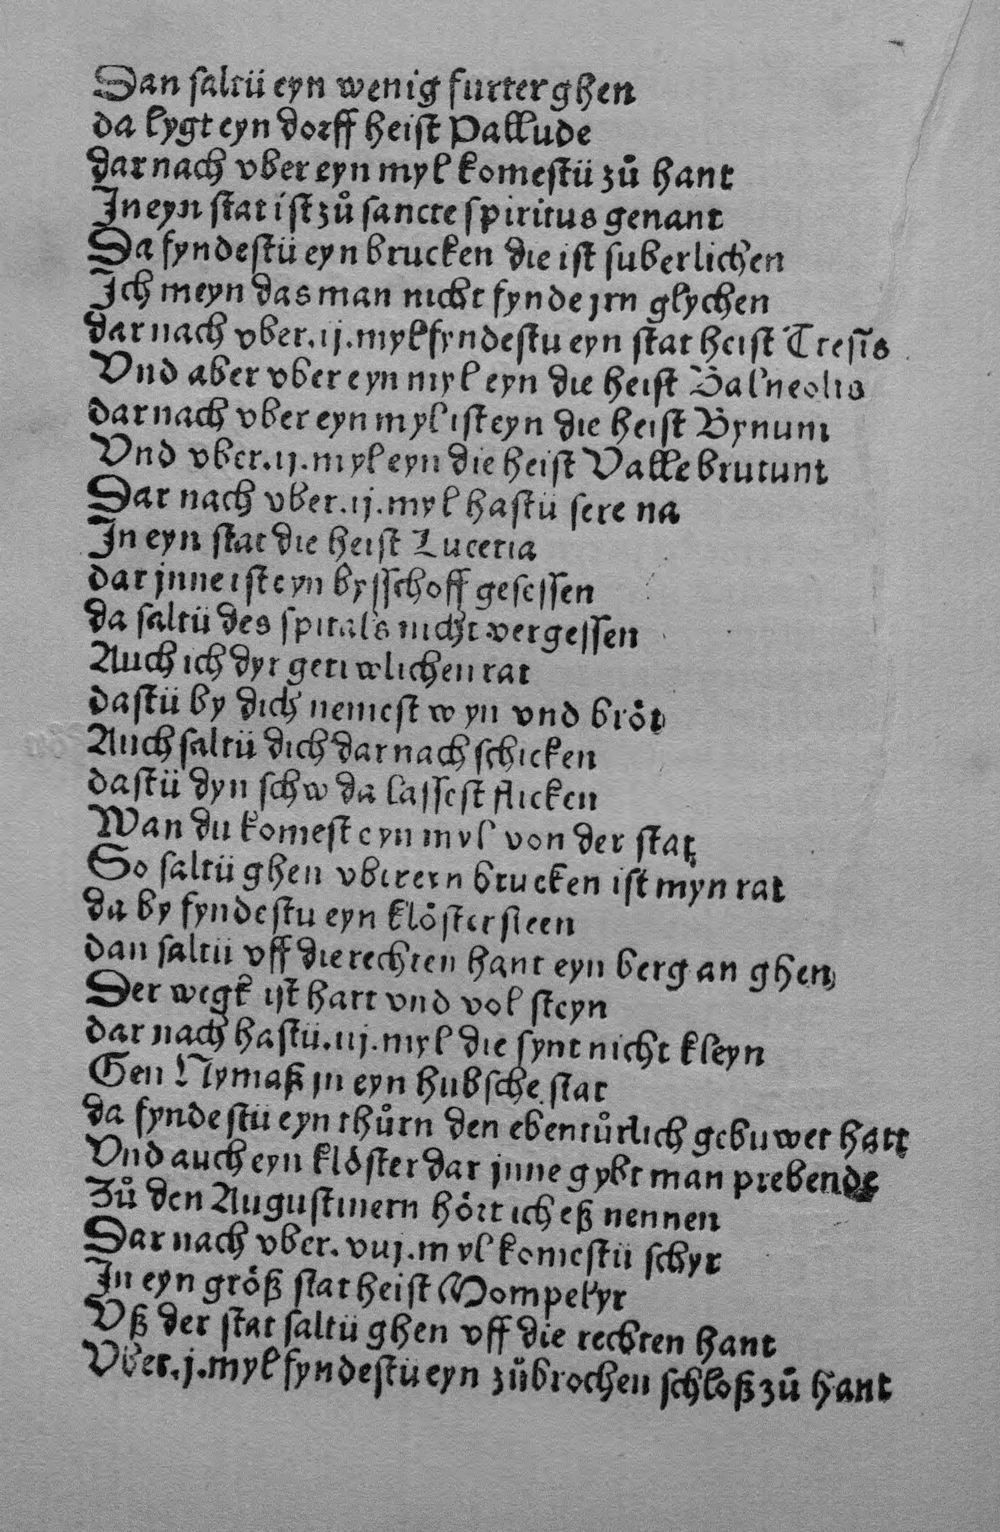 Dan saltü eyn wenig furter ghen
da lygt eyn dorff heist Pallude
dar nach vber eyn myl komestü zů hant
In eyn stat ist zů sancte spiritus genant
Da fyndestü eyn brucken die ist suberlichen
Ich meyn das man nicht fynde jrn glychen
dar nach vber .ij. myl fyndestu eyn stat heist Tresis̄
Vnd aber vber eyn myl eyn die heist Balneolis
dar nach vber eyn myl ist eyn die heist Bynum
Vnd vber .ij. myl eyn die heist Valle brutunt
Dar nach vber .ij. myl hastü sere na
In eyn stat die heist Luceria
dar jnne ist eyn bysschoff gesessen
da saltü des spitals nicht vergessen
Auch ich dyr getrwlichen rat
dastü by dich nemest wyn vnd bröt
Auch saltü dich dar nach schicken
dastü dyn schw da lassest flicken
Wan du komest eyn myl von der stat
So saltü ghen vber eyn brucken ist myn rat
da by fyndestu eyn klöster steen
dan saltü vff die rechten hant eyn berg an ghen
Der wegk ist hart vnd vol steyn
dar nach hastü .iij. myl die synt nicht kleyn
Gen Nymaß jn eyn hubsche stat
da fyndestü eyn thůrn den ebentůrlich gebuwet hatt
Vnd auch eyn klöster dar jnne gybt man prebende
Zů den Augustinern hört ich eß nennen
Dar nach vber .viij. myl komestü schyr
In eyn größ stat heist Mompelyr
Vß der stat saltü ghen vff die rechten hant
Vber .j. myl fyndestü eyn zůbrochen schloß zů hant